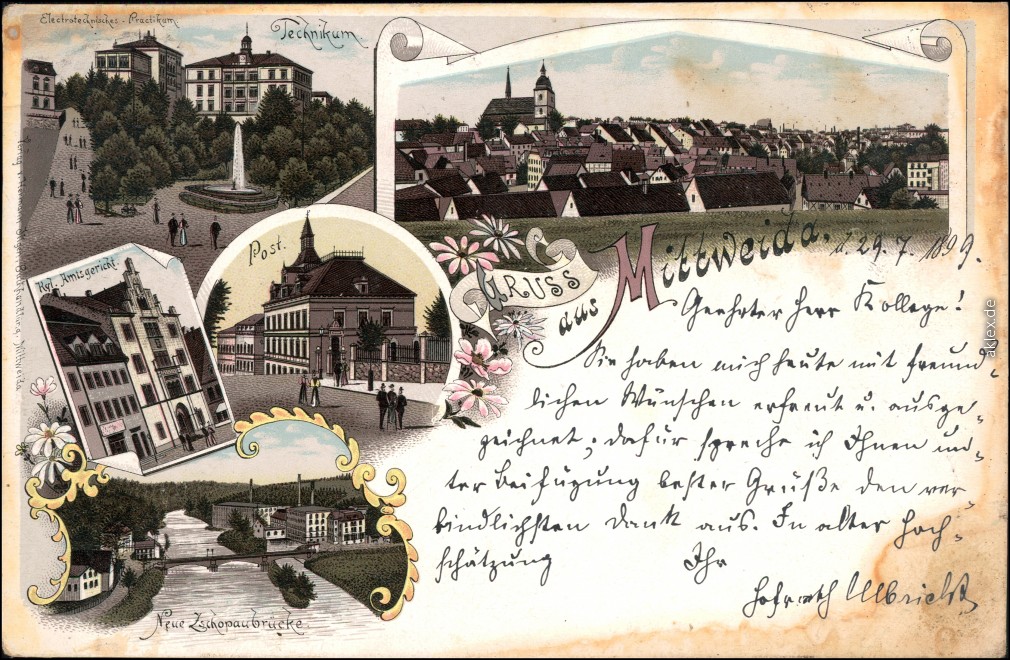 Electrotechnisches-Practikum.
Technikum.
Kgl. Amtsgericht.
Post.
Gruss
aus
Mittweida.
d. 29. 7. 1899.
Geehrter Herr Kollege!
Sie haben mich heute mit freund-
lichen Wünschen erfreut u. ausge-
zeichnet; dafür spreche ich Ihnen un-
ter Beifügung bester Grüße den ver-
bindlichsten Dank aus. In alter Hoch-
schätzung Ihr
Hofrath Ulbricht
Neue Zschopaubrücke.
Mittweida
aklex.de